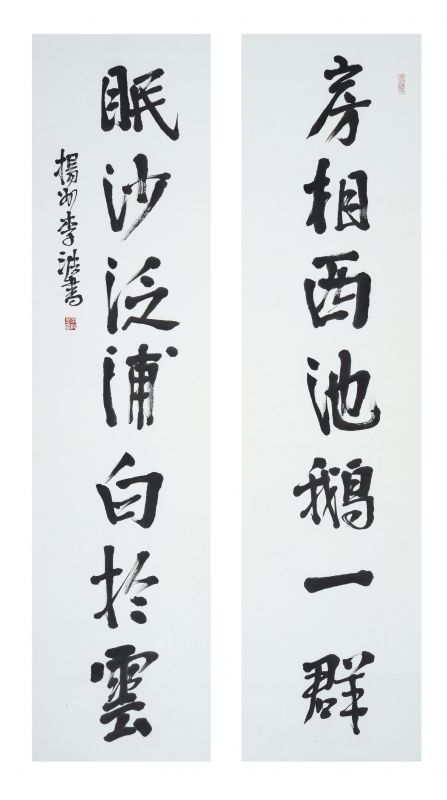 房相西池鹅一群
眠沙泛浦白於雲
揚州李浩書